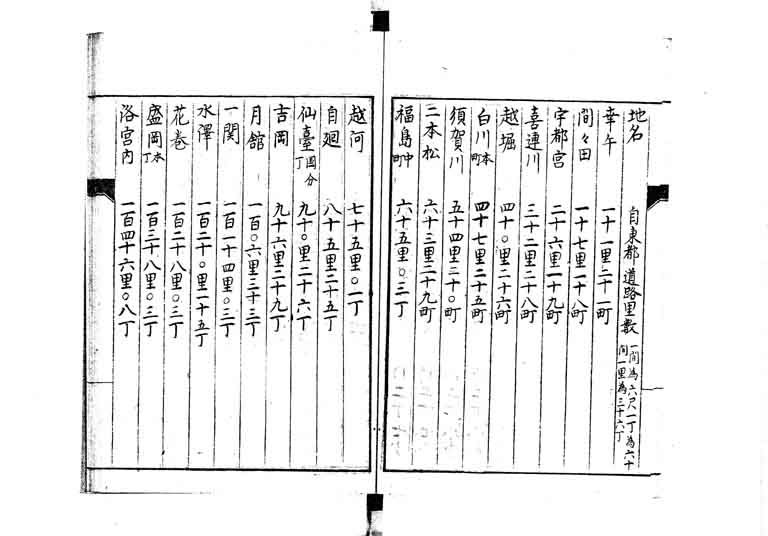 地名 自東都道路里數 一間為六尺一丁為六十間一里為三十六丁
幸午 一十一里二十一町
間々田 一十七里一十八町
宇都宮 二十六里一十九町
喜連川 三十二里二十八町
越堀 四十〇里二十六町
白川本町 四十七里二十五町
須賀川 五十四里二十〇町
二本松 六十三里二十九町
福島中町 六十五里〇三丁
越河 七十五里〇二丁
自廻 八十五里二十五丁
仙臺国分丁 九十〇里二十六丁
吉岡 九十六里二十九丁
月館 一百〇六里三十三丁
一関 一百一十四里〇三丁
水澤 一百二十〇里一十五丁
花巻 一百二十八里〇三丁
盛岡本丁 一百三十八里〇三丁
洛宮内 一百四十六里〇八丁